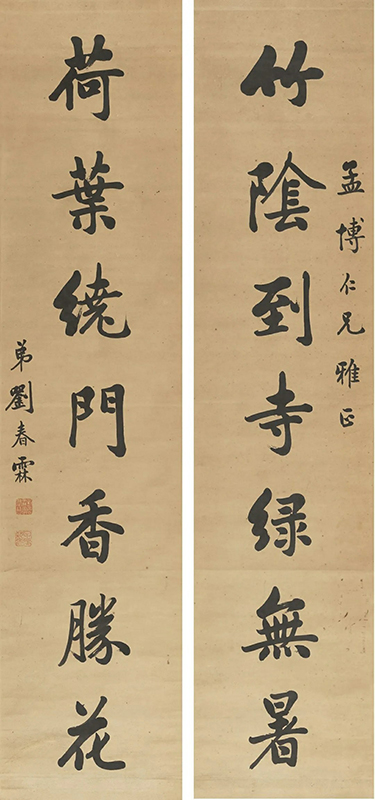 孟博仁兄雅正
竹陰到寺緑無暑
荷葉繞門香勝花
弟劉春霖